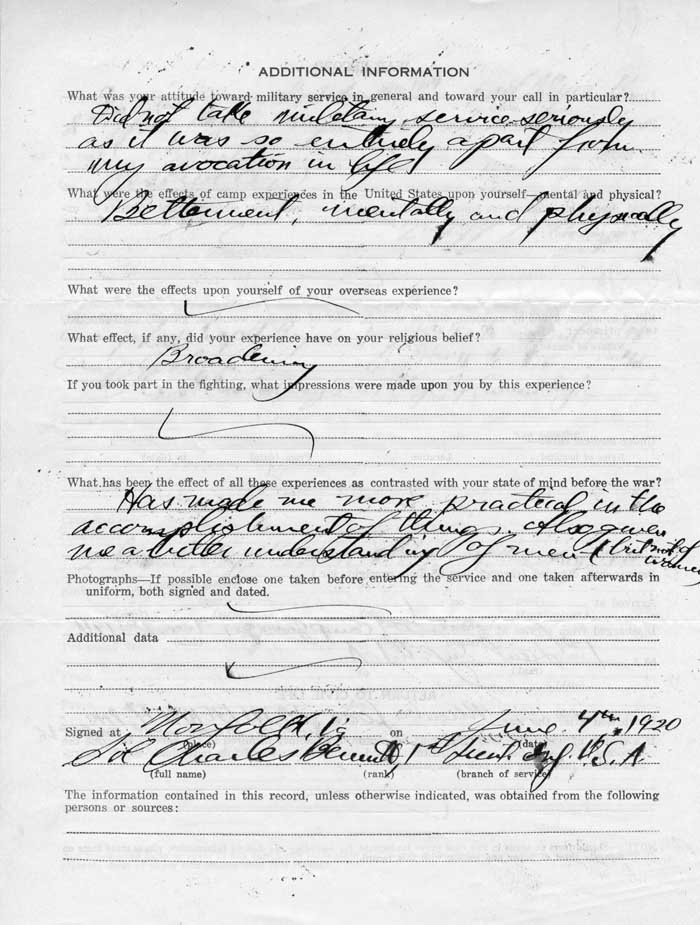 ADDITIONAL INFORMATION
What was your attitude toward military service in general and toward your call in particular?
Did not take military service seriously
as it was so entirely apart from
my avocation in life
What were the effects of camp experiences in the United States upon yourself—mental and physical?
Betterment, mentally and physically
What were the effects upon yourself of your overseas experience?
What effect, if any, did your experience have on your religious belief?
Broadening
If you took part in the fighting, what impressions were made upon you by this experience?
What has been the effect of all these experiences as contrasted with your state of mind before the war?
Has made me more practical in the
accomplishment of things. Also given
me a better understanding of men (but not of
women
Photographs—If possible enclose one taken before entering the service and one taken afterwards in
uniform, both signed and dated.
Additional data
Signed at Norfolk, Va on June 4th, 1920
(place) (date)
Sol Charles Bennett, 1st Lieut. Inf. U.S.A.
(full name) (rank) (branch of service)
The information contained in this record, unless otherwise indicated, was obtained from the following
persons or sources: